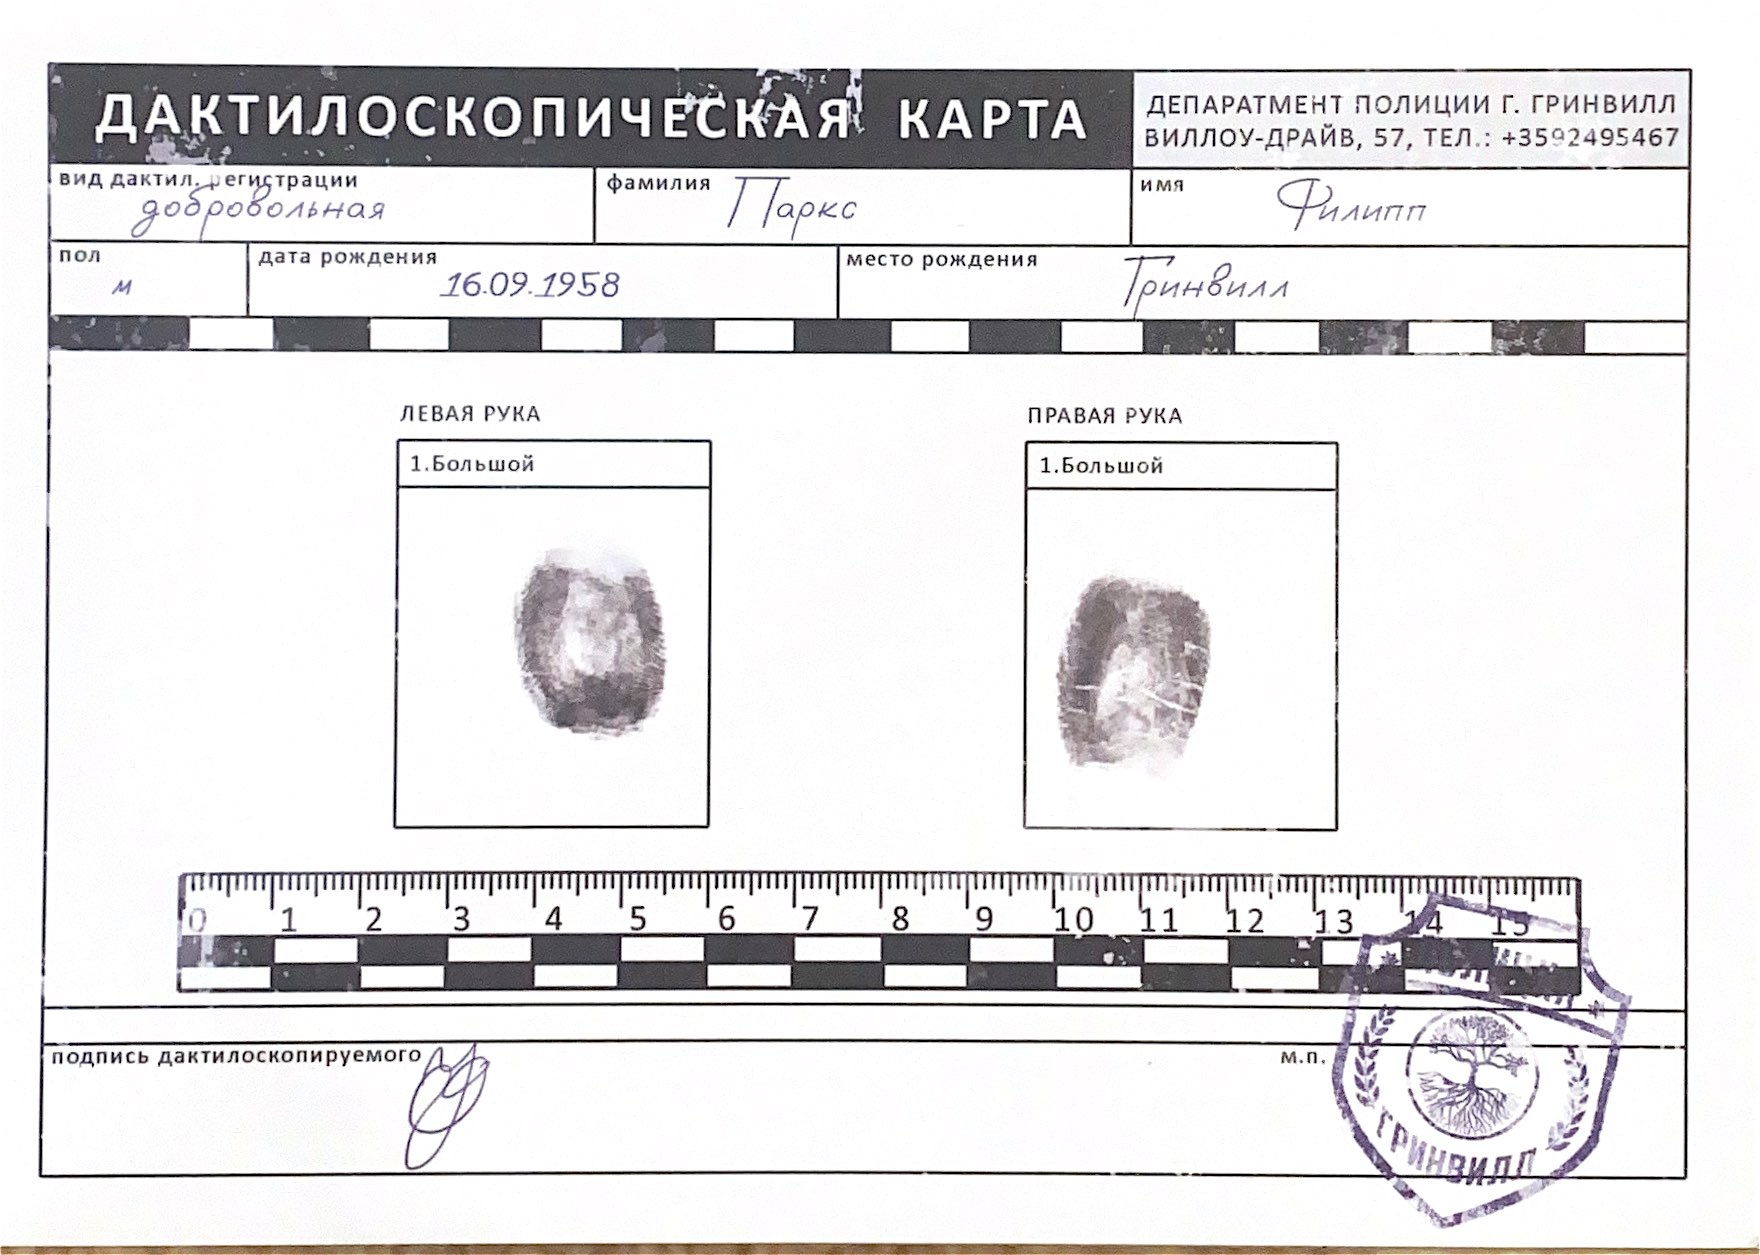 ДАКТИЛОСКОПИЧЕСКАЯ КАРТА
ДЕПАРАТМЕНТ ПОЛИЦИИ Г. ГРИНВИЛЛ
ВИЛЛОУ-ДРАЙВ, 57, ТЕЛ.: +3592495467
вид дактил. регистрации
добровольная
фамилия
Паркс
имя
Филипп
пол
м
дата рождения
16.09.1958
место рождения
Гринвилл
ЛЕВАЯ РУКА
1.Большой
ПРАВАЯ РУКА
1.Большой
0 1 2 3 4 5 6 7 8 9 10 11 12 13 14 15
подпись дактилоскопируемого
м.п.
ГРИНВИЛЛ